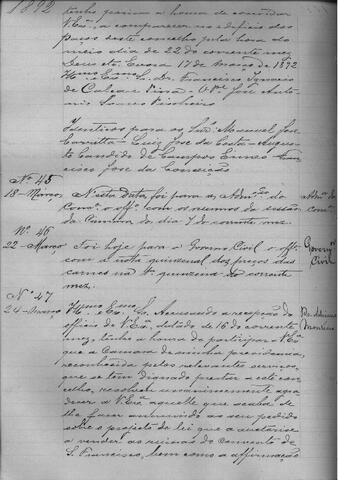 1892
tenho porisso a honra de convidar
V. Exª. a comparecer no edificio dos
paços deste concelho pela hora do
meio dia de 22 do corrente mez
Deus etc. Evora 17 de Março de 1892
Illmo. e Exmo. Sr. Dr. Francisco Ignacio
de Calça e Pina - O Vice José Anto-
nio Soares Pinheiro
Identicos para os Srs. Manuel José
- Luiz José da Costa - Augus-
to Candido de Campos Ennes - Fran-
cisco José da Conceição
Nº 45
18 - Março Nesta data foi para o Admor. do
Conco. o offo. com os da sessão
da Camara do dia 7 do corrente mez.
Admor. do
Conco.
Nº 46
22 - Março Foi hoje para o Governo Civil o offo.
com a nota quinzenal dos preços das
carnes na 1ª quinzena do corrente
mez.
Governo
Civil
Nº 47
24 - Março Illmo. e Exmo. Sr. Accusando a recepção do
officio de V. Exª. datado de 16 do corrente
mez, tenho a honra de participar a V. Exª.
que a Camara de minha presidencia,
reconhecida pelos relevantes serviços,
que se tem dignado prestar a este con-
celho, resolveu unanimemente agra-
decer a V. Exª. aquelle que acaba de
lhe fazer annuindo ao seu pedido
sobre o projecto de lei que a auctorise
a vender as ruinas do convento de
S. Francisco, bem como a affirmação